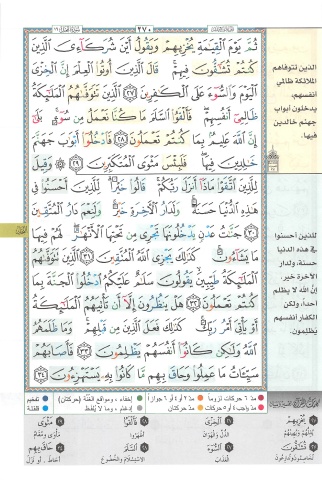 سورة النحل ١٦
٢٧٠
ثُمَّ يَوْمَ الْقِيَٰمَةِ يُخْزِيهِمْ وَيَقُولُ أَيْنَ شُرَكَآءِىَ الَّذِينَ
كُنتُمْ تُشَٰٓقُّونَ فِيهِمْ ۚ قَالَ الَّذِينَ أُوتُوا۟ الْعِلْمَ إِنَّ الْخِزْىَ
الْيَوْمَ وَالسُّوٓءَ عَلَى الْكَٰفِرِينَ ٢٧ الَّذِينَ تَتَوَفَّىٰهُمُ الْمَلَٰٓئِكَةُ
ظَالِمِىٓ أَنفُسِهِمْ ۖ فَأَلْقَوُا۟ السَّلَمَ مَا كُنَّا نَعْمَلُ مِن سُوٓءٍۭ ۚ بَلَىٰٓ
إِنَّ اللَّهَ عَلِيمٌۢ بِمَا كُنتُمْ تَعْمَلُونَ ٢٨ فَادْخُلُوٓا۟ أَبْوَٰبَ جَهَنَّمَ
خَٰلِدِينَ فِيهَا ۖ فَلَبِئْسَ مَثْوَى الْمُتَكَبِّرِينَ ٢٩ ۞ وَقِيلَ
لِلَّذِينَ اتَّقَوْا۟ مَاذَآ أَنزَلَ رَبُّكُمْ ۚ قَالُوا۟ خَيْرًا ۗ لِّلَّذِينَ أَحْسَنُوا۟ فِى
هَٰذِهِ الدُّنْيَا حَسَنَةٌ ۚ وَلَدَارُ الْءَاخِرَةِ خَيْرٌ ۚ وَلَنِعْمَ دَارُ الْمُتَّقِينَ
٣٠ جَنَّٰتُ عَدْنٍ يَدْخُلُونَهَا تَجْرِى مِن تَحْتِهَا الْأَنْهَٰرُ ۖ لَهُمْ فِيهَا
مَا يَشَآءُونَ ۚ كَذَٰلِكَ يَجْزِى اللَّهُ الْمُتَّقِينَ ٣١ الَّذِينَ تَتَوَفَّىٰهُمُ
الْمَلَٰٓئِكَةُ طَيِّبِينَ ۙ يَقُولُونَ سَلَٰمٌ عَلَيْكُمُ ادْخُلُوا۟ الْجَنَّةَ بِمَا
كُنتُمْ تَعْمَلُونَ ٣٢ هَلْ يَنظُرُونَ إِلَّآ أَن تَأْتِيَهُمُ الْمَلَٰٓئِكَةُ
أَوْ يَأْتِىَ أَمْرُ رَبِّكَ ۚ كَذَٰلِكَ فَعَلَ الَّذِينَ مِن قَبْلِهِمْ ۚ وَمَا ظَلَمَهُمُ
اللَّهُ وَلَٰكِن كَانُوٓا۟ أَنفُسَهُمْ يَظْلِمُونَ ٣٣ فَأَصَابَهُمْ
سَيِّـَٔاتُ مَا عَمِلُوا۟ وَحَاقَ بِهِم مَّا كَانُوا۟ بِهِۦ يَسْتَهْزِءُونَ ٣٤
الذين تتوفاهم
الملائكة ظالمي
أنفسهم،
يدخلون أبواب
جهنم خالدين
فيها.
للذين أحسنوا
في هذه الدنيا
حسنة، ولدار
الآخرة خير.
إن الله لا يظلم
أحداً، ولكن
الكفار أنفسهم
يظلمون.
مدّ ٦ حركات لزوماً مدّ ٢ أو ٤ أو ٦ جوازاً إخفاء، ومواقع الغُنَّة (حركتان) تفخيم
مدّ واجب ٤ أو ٥ حركات مدّ حركتان إدغام، وما لا يُلفَظ قلقلة